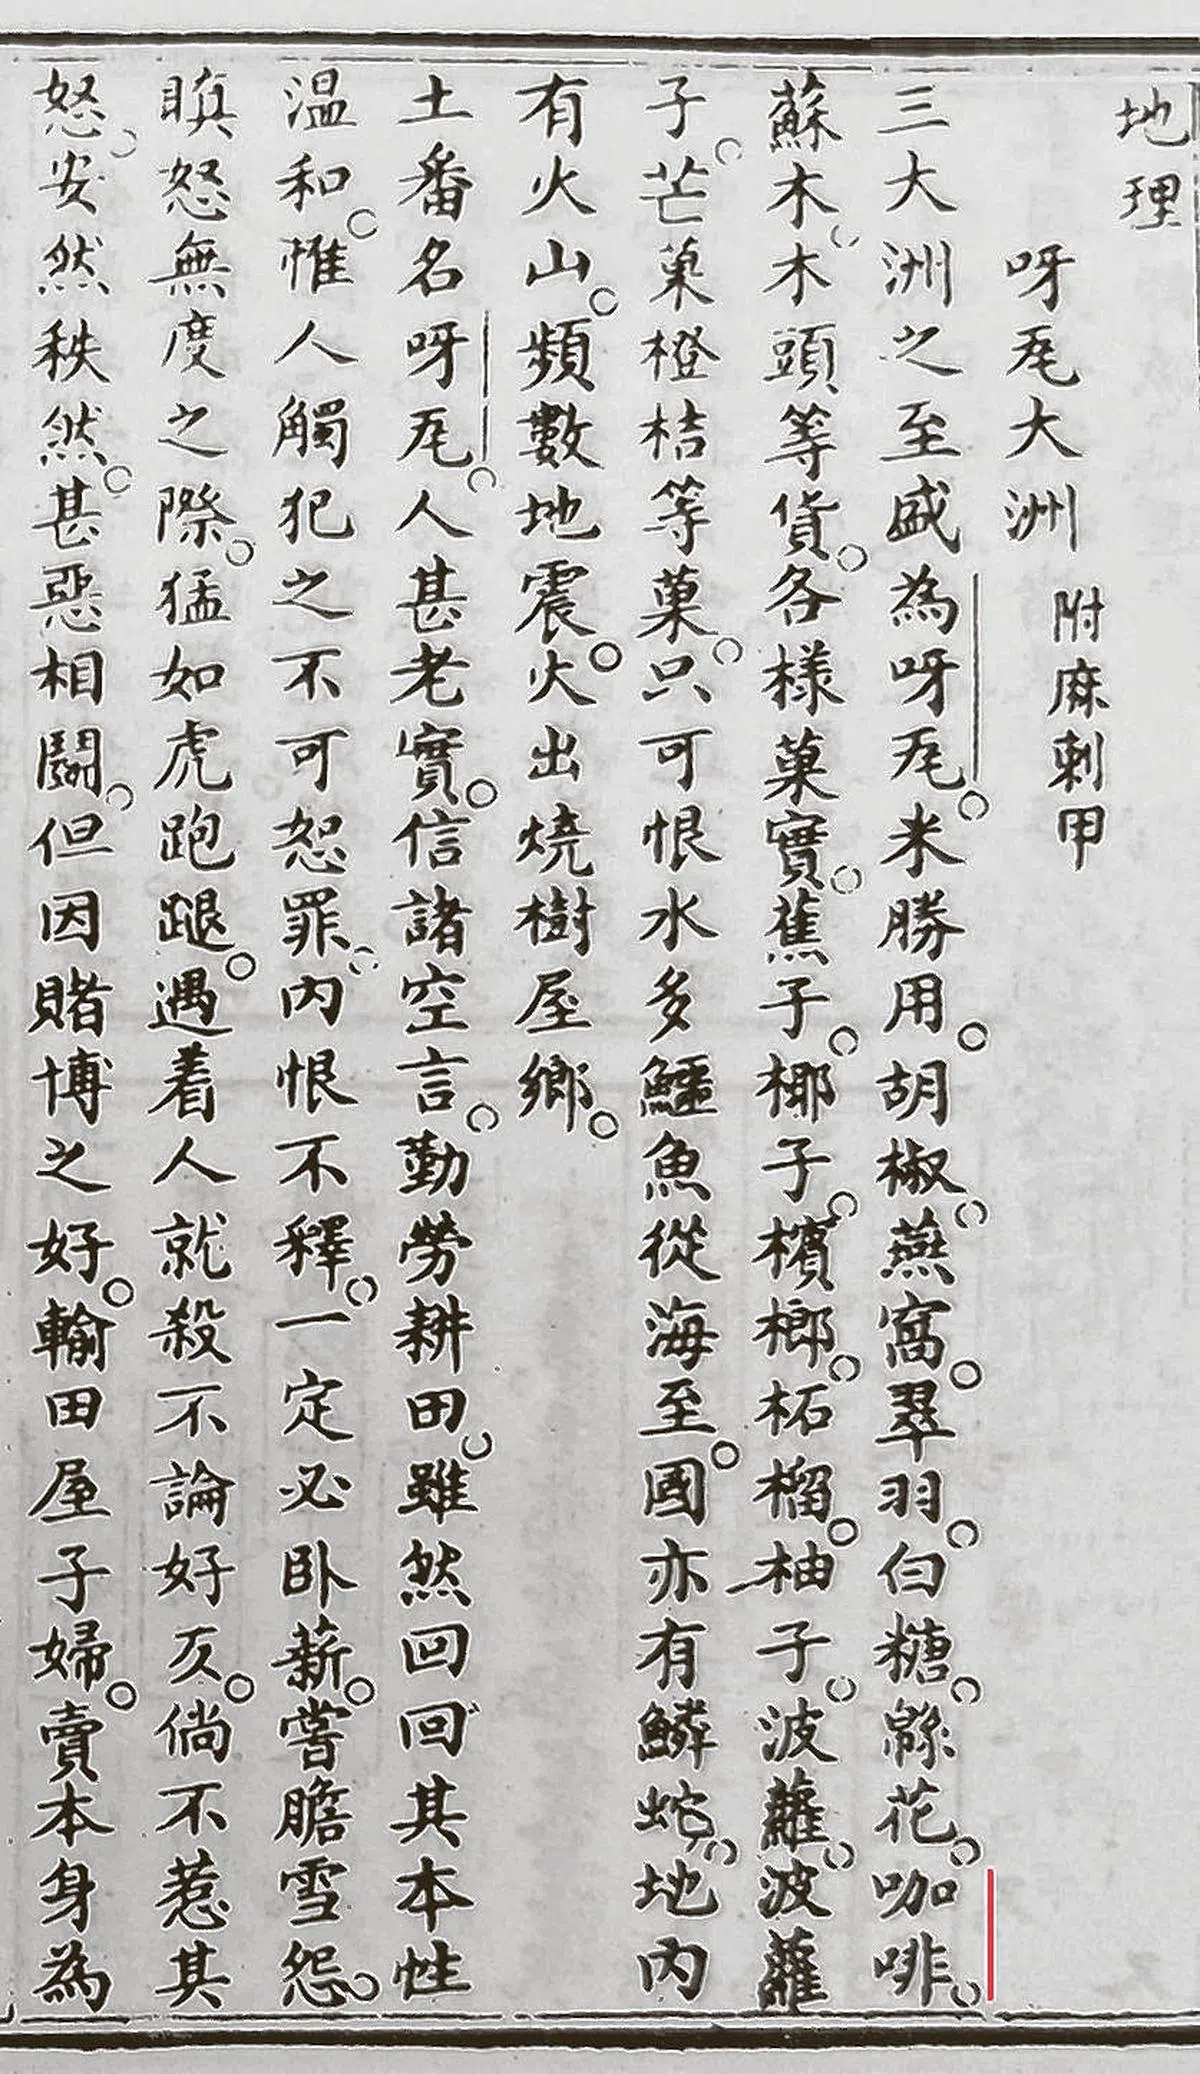 地理
呀瓦大洲 附麻剌甲
三大洲之至盛為呀瓦。米勝用。胡椒。燕窩。翠羽。白糖。綿花。咖啡。
蘇木。木頭等貨。各樣菓實。蕉子。椰子。檳榔。柘榴。柚子。波蘿。波蘿
子。芒菓橙桔等菓。只可恨水多鱷魚從海至。國亦有鱗蛇。地內
有火山。頻數地震。火出燒樹屋鄉。
土番名呀瓦。人甚老實。信諸空言。勤勞耕田。雖然回回其本性
温和。惟人觸犯之不可恕罪。內恨不釋。一定必卧薪。嘗膽雪怨。
瞋怒無度之際。猛如虎跑蹆。遇着人就殺不論好歹。倘不惹其
怒。安然秩然。甚惡相鬭。但因賭博之好。輸田屋子婦。賣本身為